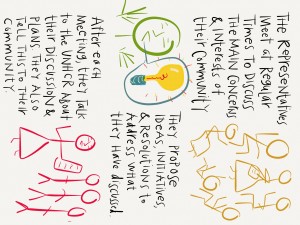 The Representatives
Meet at Regular
Times to Discuss
The MAIN Concerns
& Interests of
their Community
They Propose
ideas, initiatives,
& Resolutions to
Address what
they Have discussed
After each
Meeting, they Talk
to the UNHCR About
their Discussion &
Plans. They Also
Tell This To Their
Community.